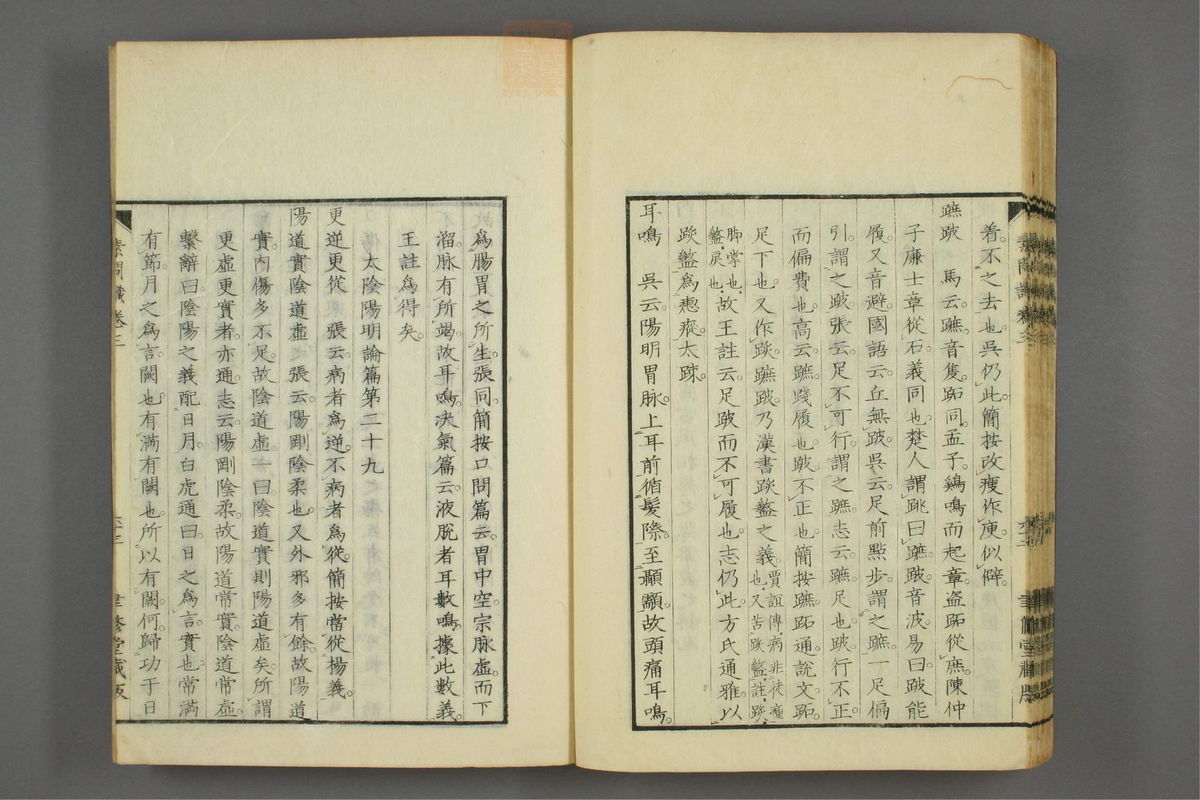 着不之去也吳仍此簡按改瘦作庚似僻
蹠跛　馬云蹠音隻跖同孟子鷄鳴而起章盗跖從庶陳仲
子亷士章從石義同也楚人謂跳曰蹠跛音波易曰跛能
履又音避國語云丘無跛吳云足前點步謂之蹠一足偏
引謂之跛張云足不可行謂之蹠志云蹠足也跛行不正
而偏費也高云蹠踐履也跛不正也簡按蹠跖通說文跖
足下也又作䟢蹠跛乃漢書䟢盭之義賈誼傳病非徒瘇也又苦䟢盭註䟢
脚掌也盭戾也故王註云足跛而不可履也志仍此方氏通雅以
䟢盭爲瘛瘲太踈
耳鳴　吳云陽明胃脉上耳前循髮際至額顱故頭痛耳鳴
素問識卷三
聿修堂藏版
爲腸胃之所生張同簡按口問篇云胃中空宗脉虛而下
溜脉有所竭故耳鳴決氣篇云液脫者耳數鳴據此數義
王註爲得矣
太陰陽明論篇第二十九
更逆更從　張云病者爲逆不病者爲從簡按當從楊義
陽道實陰道虛　張云陽剛陰柔也又外邪多有餘故陽道
實內傷多不足故陰道虛一曰陰道實則陽道虛矣所謂
更虛更實者亦通志云陽剛陰柔故陽道常實陰道常虛
繫辭曰陰陽之義配日月白虎通曰日之爲言實也常滿
有節月之爲言闕也有滿有闕也所以有闕何歸功于日
素問識卷三
六十三
聿修堂藏版